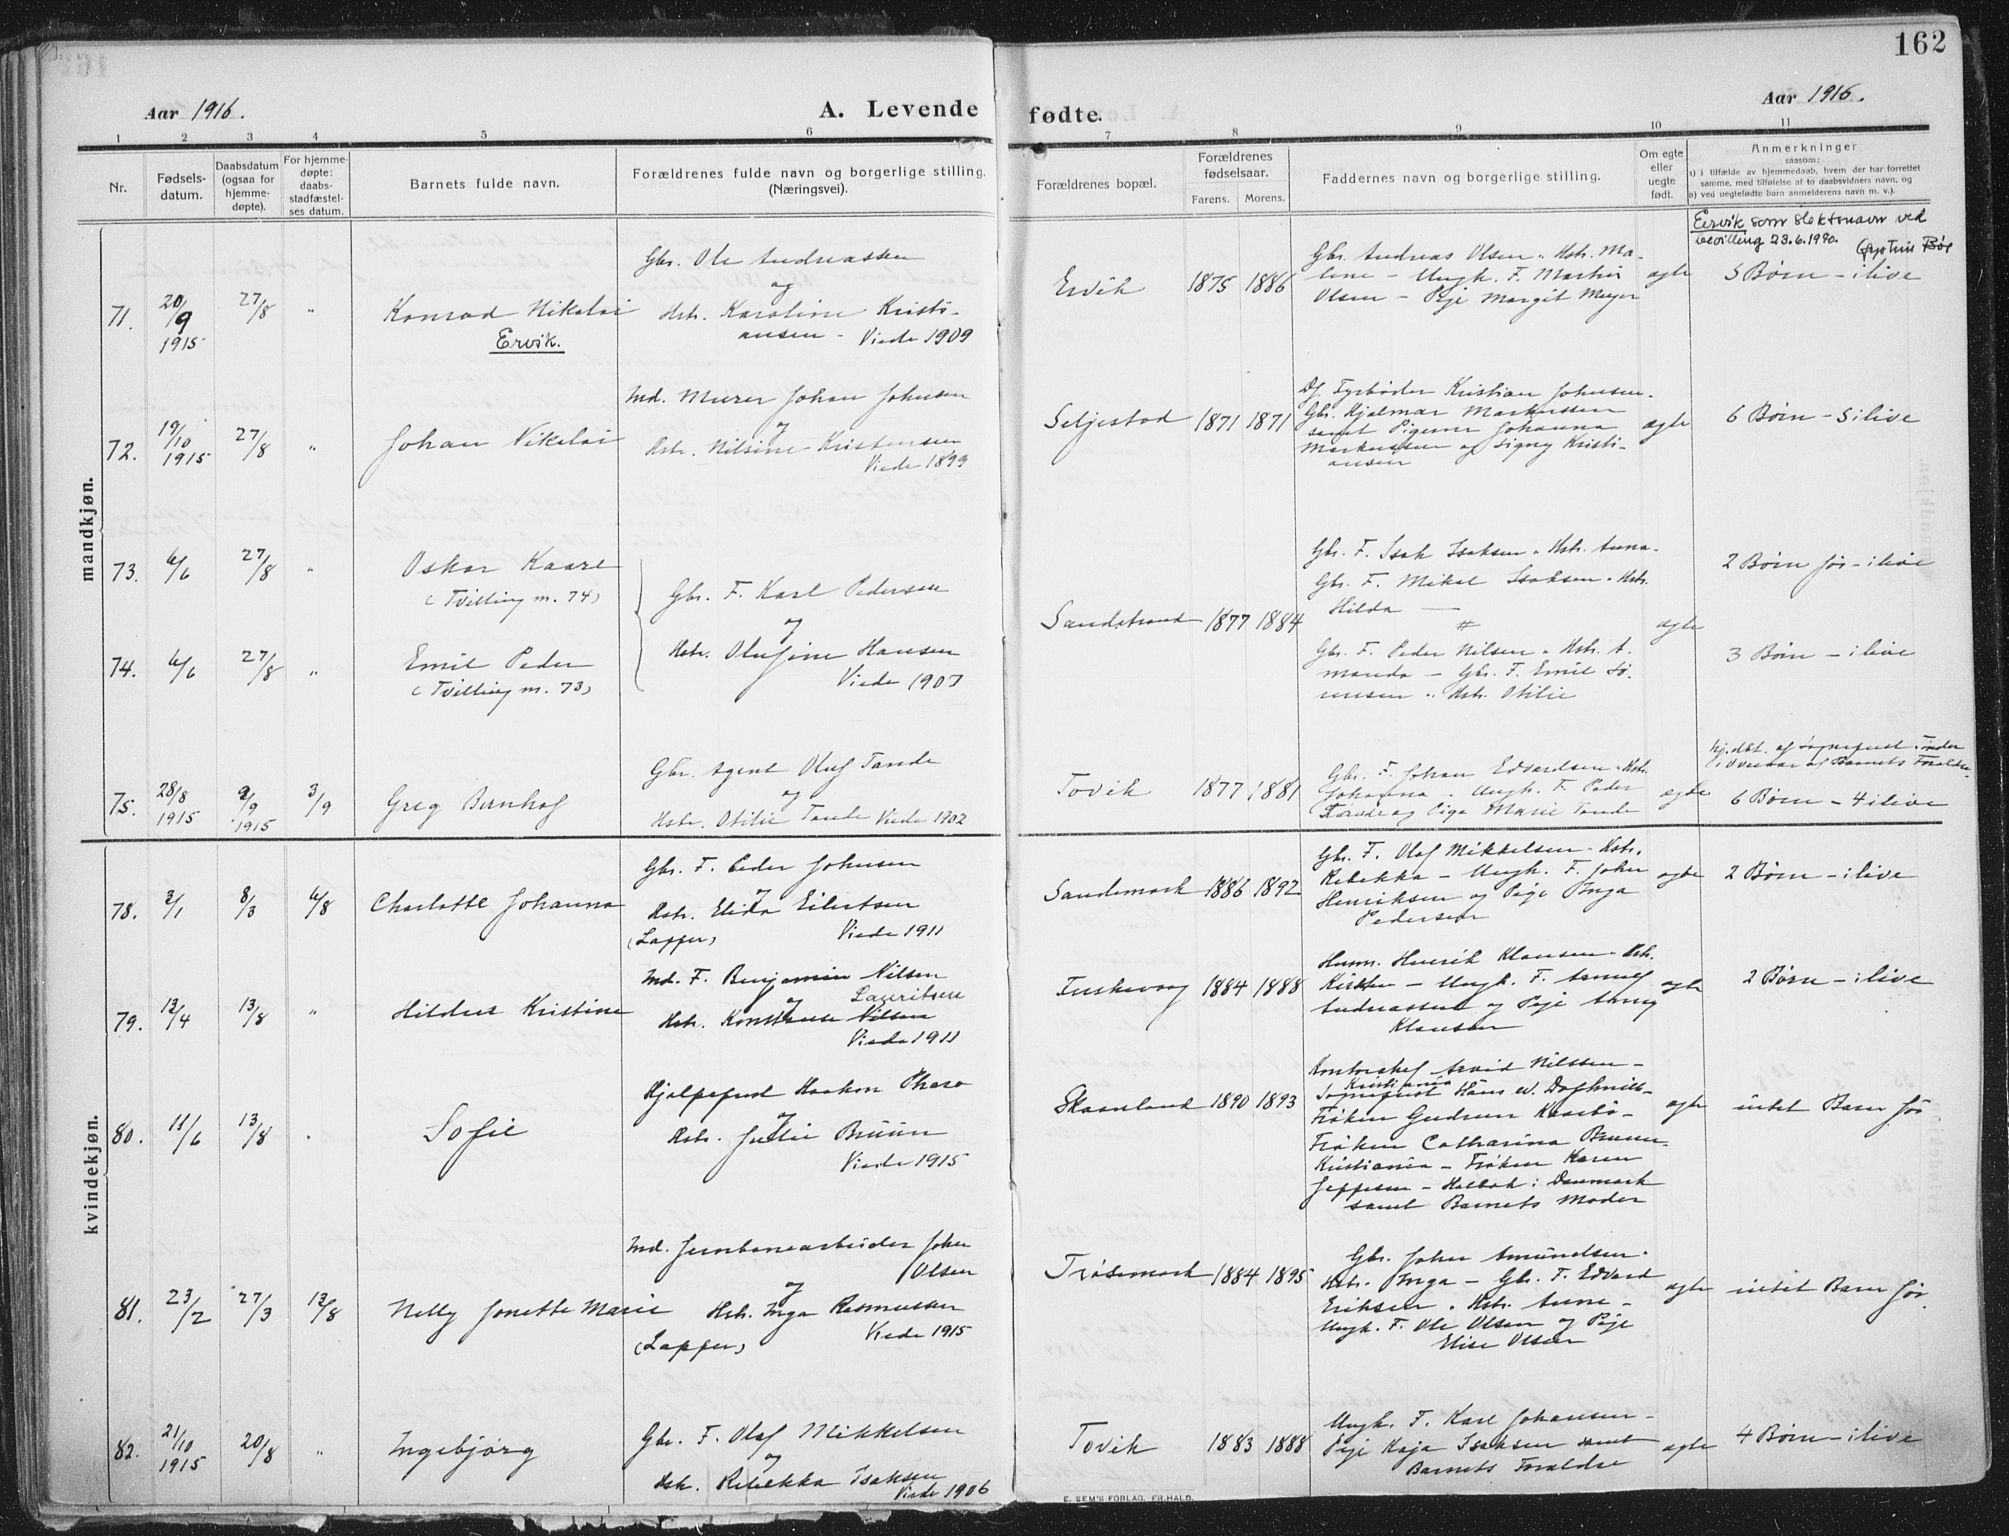 162
Aar 1916.
A. Levende fødte.
Aar 1916.
1 2 3 4 5 6 7 8 9 10 11
Nr.
Fødsels-
datum.
Daabsdatum
(ogsaa for
hjemme-
døpte).
For hjemme-
døpte:
daabs-
stadfæstel-
ses datum.
Barnets fulde navn.
Forældrenes fulde navn og borgerlige stilling.
(Næringsvei).
Forældrenes bopæl.
Forældrenes
fødselsaar.
Farens. Morens.
Faddernes navn og borgerlige stilling.
Om egte
eller
uegte
født.
Anmerkninger
saasom:
a) i tilfælde av hjemmedaab, hvem der har forrettet
samme, med tilføielse af to daabsvidners navn, og
b) ved uegtefødte barn anmelderens navn m. v.).
mandkjøn.
71.
20/9
1915
27/8
"
Konrad Nikolai
Ervik.
Gbr. Ole Andreassen
og
Hstr. Karoline Kristi-
ansen - Viede 1909
Ervik
1875 1886
Gbr. Andreas Olsen " Hstr. Ma-
lene - Ungk. F. Martin
Olsen - Pige Margit Meyer
egte
Ervik som slektsnavn ved
bevilling 23.6.1990.
5 Børn - i live
72.
19/10
1915
27/8
"
Johan Nikolai
Md. Murer Johan Johnsen
og
Hstr. Nilsine Kristensen
Viede 1899
Seljestad
1871 1871
Fyrbøder Kristian Johnsen -
Gbr. Hjalmar Markussen
samt Pigerne Johanna
Markussen og Signy Kristi-
ansen
egte
6 Børn - 5 i live
73.
6/6
27/8
"
Oskar Kaare
(Tvilling m. 74)
Gbr. F. Karl Pedersen
og
Hstr. Olufine Hansen
Viede 1907
Sandstrand
1877 1884
Gbr. F. Isak Isaksen " Hstr. Anna -
Gbr. F. Mikal Isaksen " Hstr.
Hilda —
egte
2 Børn før - i live
74.
6/6
27/8
"
Emil Peder
(Tvilling m. 73)
Gbr. F. Peder Nilsen " Hstr. A-
manda - Gbr. F. Emil Sø-
rensen " Hstr. Otilie
3 Børn - i live
75.
28/8
1915
9/9
1915
3/9
Greg Bernhof
Gbr. Agent Oluf Tande
og
Hstr. Otilie Tande Viede 1902
Tovik
1877 1881
Gbr. F. Johan Edvardsen " Hstr.
Johanna - Ungk. F. Peder
og Pige Marie Tande
egte
6 Børn - 4 i live
kvindekjøn.
78.
3/1
8/3
6/8
Charlotte Johanna
Gbr. F. Peder Johnsen
og
Hstr. Elida Eilertsen
(Lapper) Viede 1911
Sandemark
1886 1892
Gbr. F. Olaf Mikkelsen " Hstr.
Rebekka - Ungk. F. Johan
Henriksen og Pige Inga
Pedersen
egte
2 Børn - i live
79.
12/4
13/8
"
Hildus Kristine
Md. F. Benjamin Nilsen
og Lauritsen
Hstr. Konstanse Nilsen
Viede 1911
Fuskevaag
1884 1888
Husm. Henrik Klausen " Hstr.
Kirsten - Ungk. F. Arnulf
Andreassen og Pige Anny
Klausen
egte
2 Børn - i live
80.
11/6
13/8
Sofie
Hjælpeprest Haakon Tharo
og
Hstr. Julie Bruun
Viede 1915
Skaanland
1890 1893
Kontorchef Arvid Nilssen -
Kristiania
Sogneprest Hans
Frøken Gudrun
Frøken Catharina Bruun
Kristiania - Frøken Karen
Jeppesen - Holbæk i Danmark
samt Barnets Moder
egte
intet Barn før
81.
23/2
27/3
13/8
Nelly Jonette Marie
Md. Jernbanearbeider Johan
Olsen
og
Hstr. Inga Rasmussen
(Lapper) Viede 1915
Trøsemark
1884 1895
Gbr. Johan Amundsen -
Hstr. Inga - Gbr. F. Edvard
Eriksen " Hstr. Anne -
Ungk. F. Ole Olsen og Pige
Elise Olsen
egte
intet Barn før.
82.
21/10
1915
20/8
"
Ingebjørg
Gbr. F. Olaf Mikkelsen
og
Hstr. Rebekka Isaksen
Viede 1906
Tovik
1883 1888
Ungk. F. Karl Johansen -
Pige Kaja Isaksen samt
Barnets Forældre
egte
4 Børn - i live
E. SEM'S FORLAG, FR.HALD.